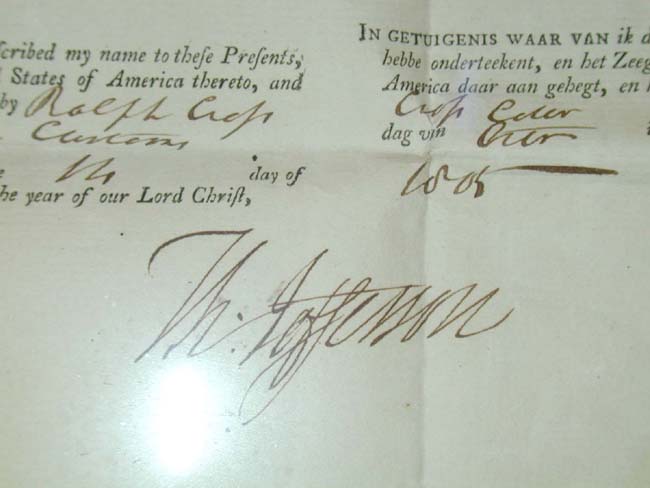 scribed my name to theſe Preſents,
States of America thereto, and
by Ralph Croſs
Customs
day of
he year of our Lord Chriſt,
IN GETUIGENIS WAAR VAN ik d
hebbe onderteekent, en het Zeeg
America daar aan gehegt, en
Croſs
dag van
1805
Th. Jefferson